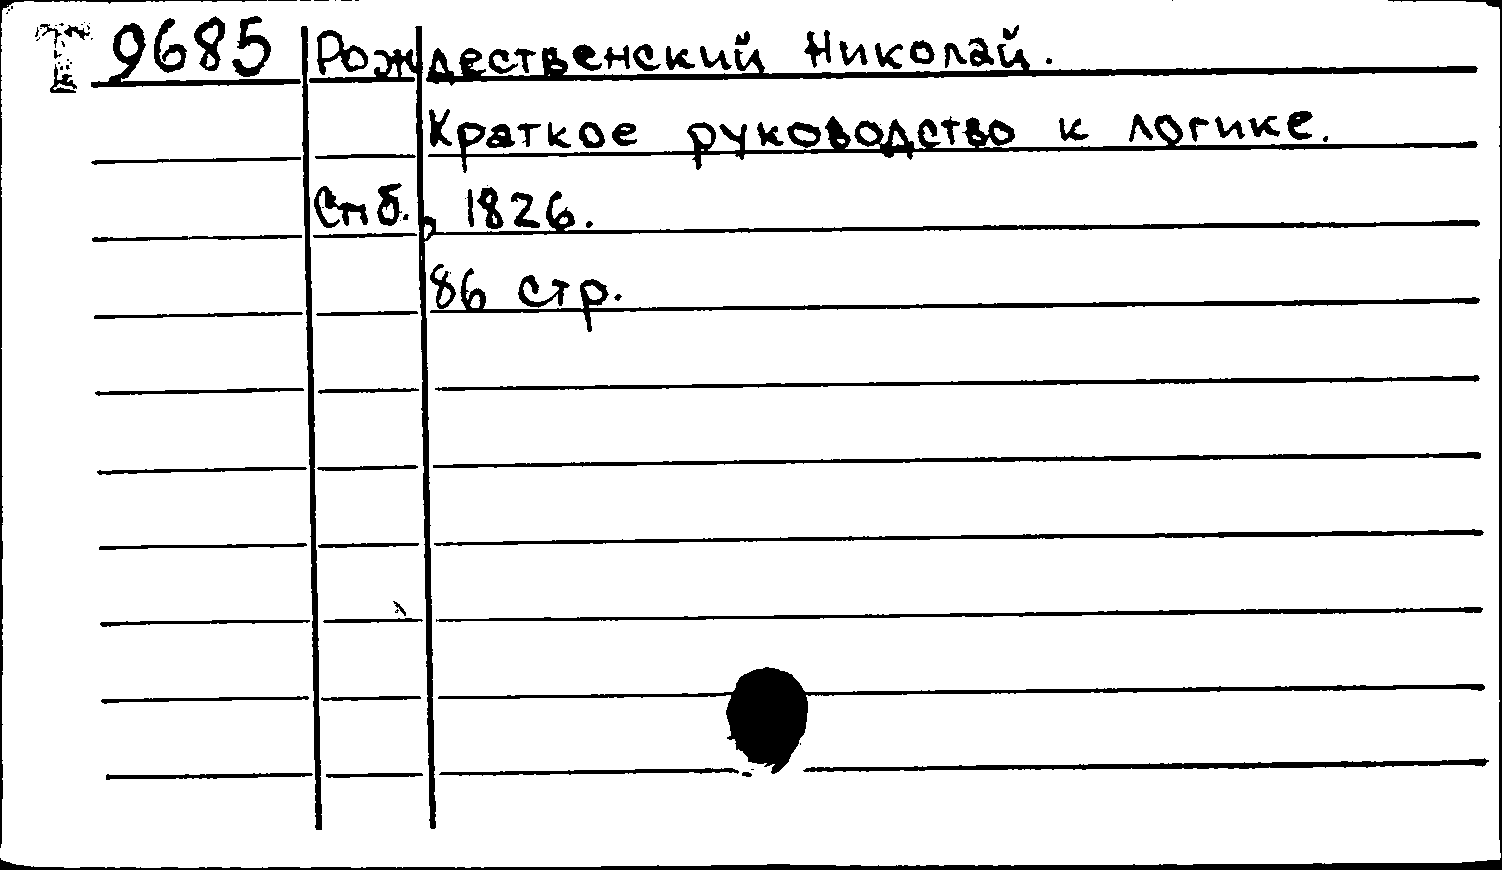 T 9685 Рождественский Николай.
Краткое руководство к логике.
Спб., 1826.
86 стр.